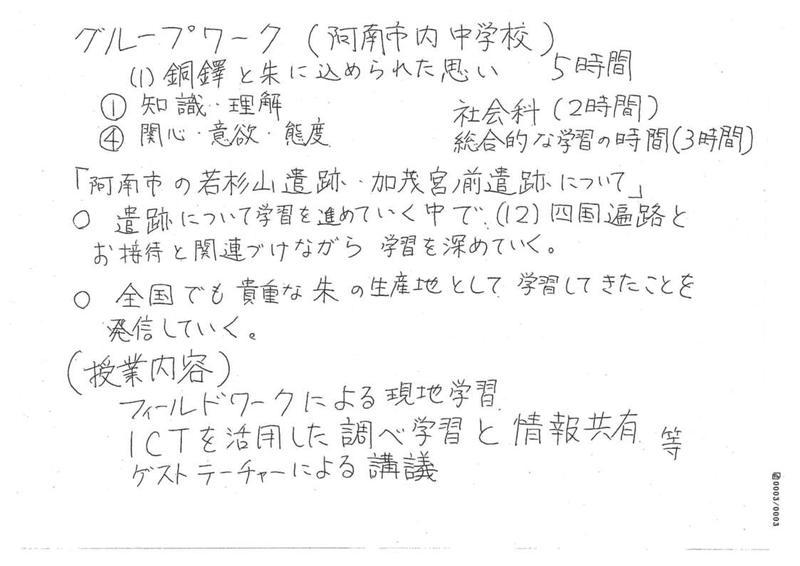 グループワーク (阿南市内中学校)
(1) 銅鐸と朱に込められた思い 5時間
① 知識・理解
④ 関心・意欲・態度
社会科 (2時間)
総合的な学習の時間(3時間)
「阿南市の若杉山遺跡・加茂宮ノ前遺跡について」
○ 遺跡について学習を進めていく中で、(12) 四国遍路と
お接待と関連づけながら 学習を深めていく。
○ 全国でも貴重な朱の生産地として 学習してきたことを
発信していく。
(授業内容)
フィールドワークによる現地学習
ICTを活用した調べ学習と情報共有 等
ゲストテーチャーによる講議
0003/0003